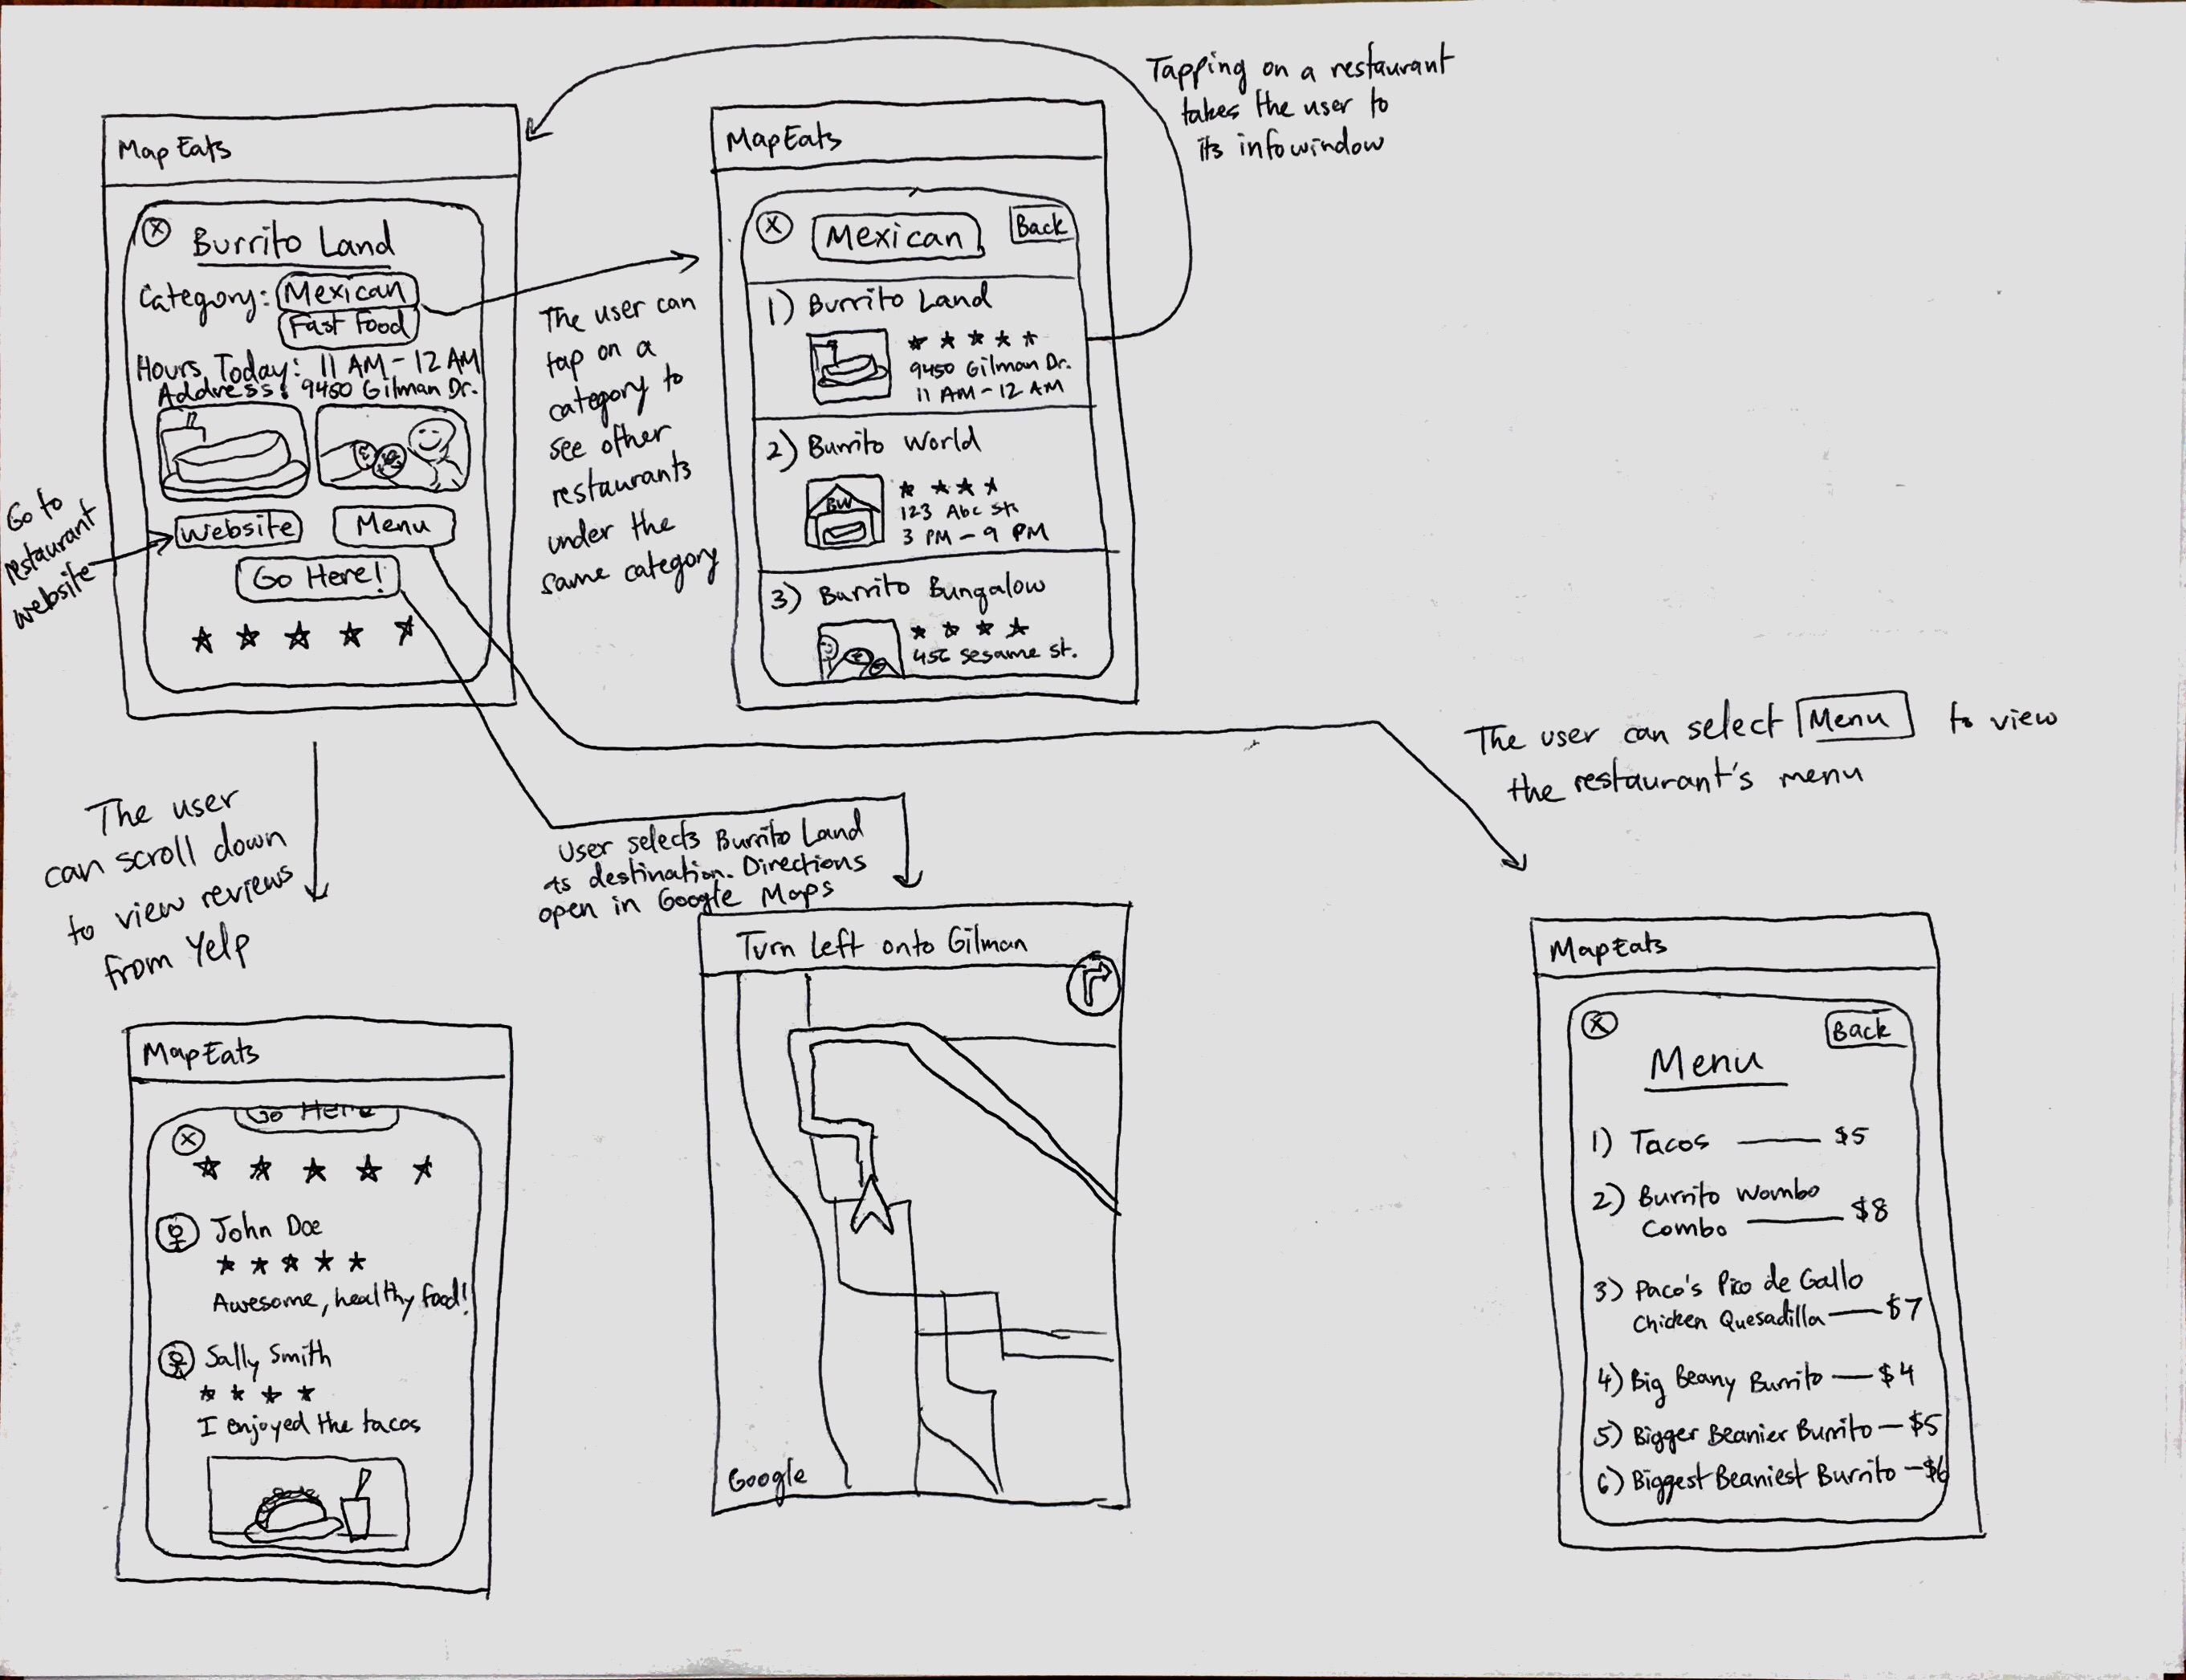 Tapping on a restaurant
takes the user to
its infowindow
MapEats
X
Burrito Land
Category: Mexican
Fast Food
Hours Today: 11 AM - 12 AM
Address: 9450 Gilman Dr.
Website
Menu
Go Here!
Go to
restaurant
website
The user can
tap on a
category to
see other
restaurants
under the
same category
MapEats
X
Mexican
Back
1) Burrito Land
9450 Gilman Dr.
11 AM - 12 AM
2) Burrito World
BW
123 Abc St.
3 PM - 9 PM
3) Burrito Bungalow
456 Sesame St.
The user can select Menu to view
the restaurant's menu
The user
can scroll down
to view reviews
from Yelp
User selects Burrito Land
as destination. Directions
open in Google Maps
MapEats
Go Here
X
John Doe
Awesome, healthy food!
Sally Smith
I enjoyed the tacos
Turn Left onto Gilman
Google
MapEats
X
Back
Menu
1) Tacos — $5
2) Burrito Wombo
Combo — $8
3) Paco's Pico de Gallo
Chicken Quesadilla — $7
4) Big Beany Burrito — $4
5) Bigger Beanier Burrito — $5
6) Biggest Beaniest Burrito — $6